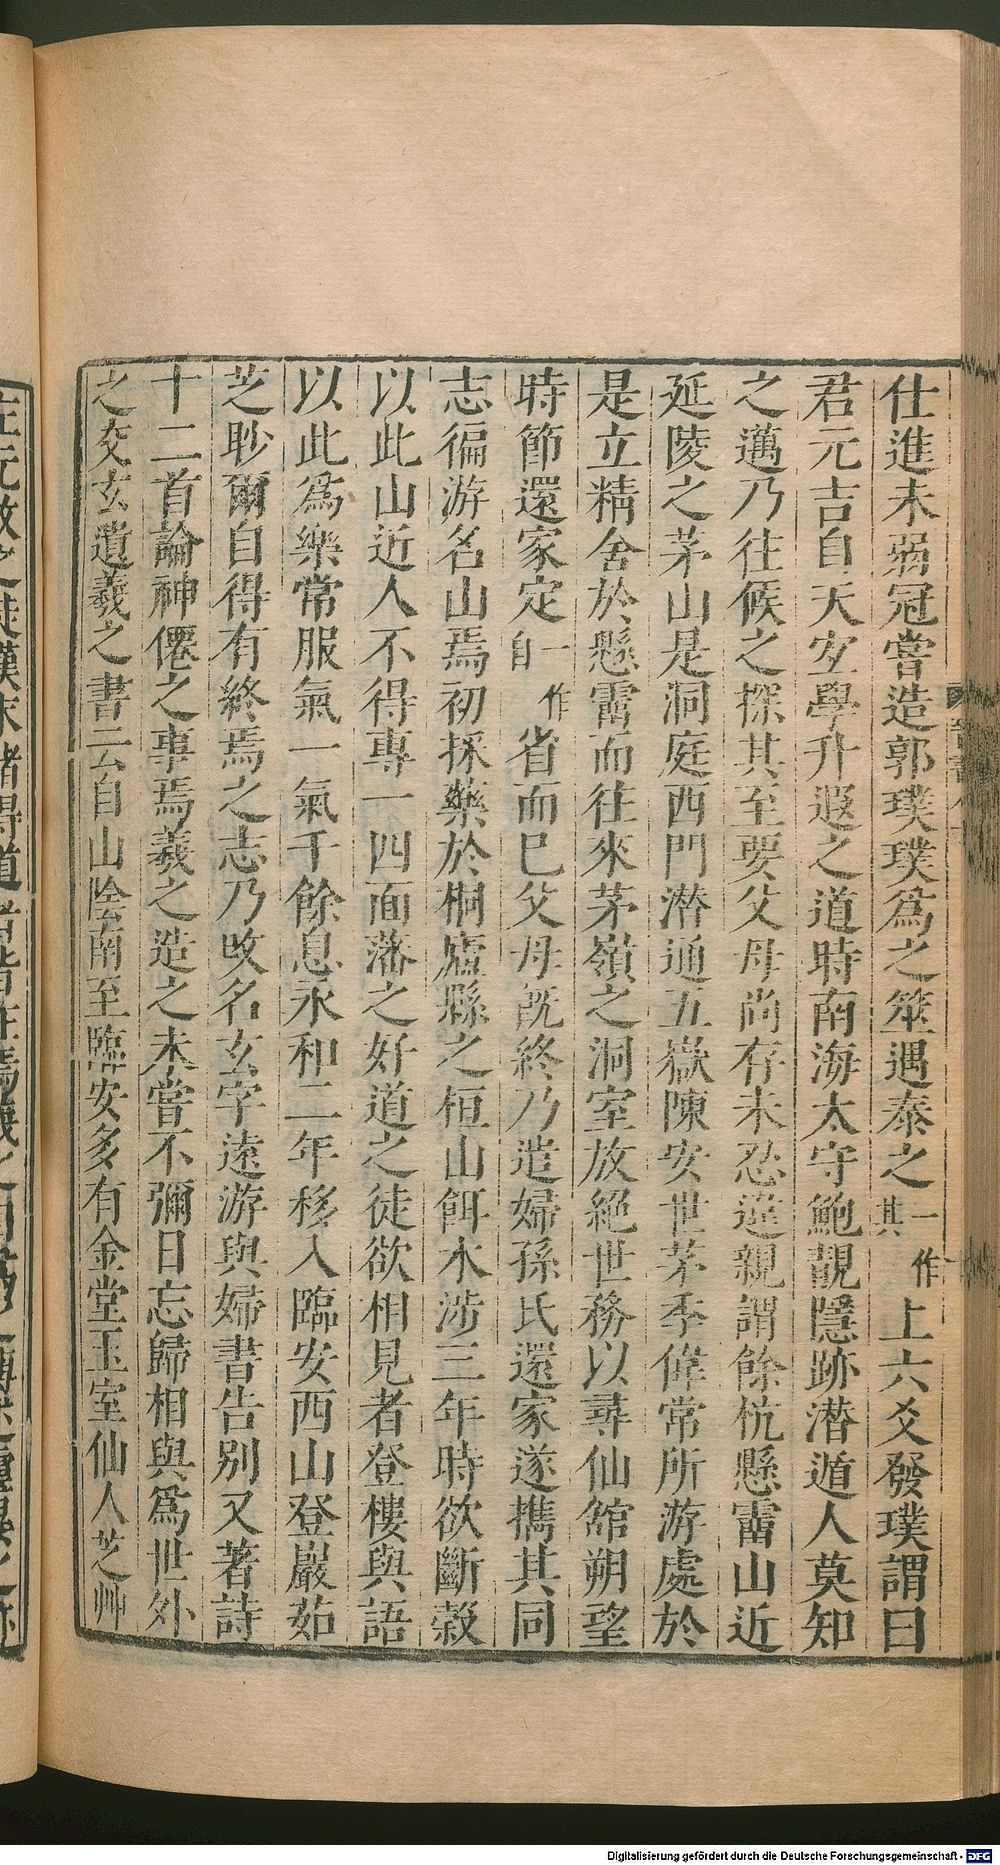 仕進未弱冠嘗造郭璞璞爲之筮遇泰之一作其上六爻發璞謂曰
君元吉自天宐學升遐之道時南海太守鮑靚隱跡潛遁人莫知
之邁乃往候之探其至要父母尚存未忍違親謂餘杭懸霤山近
延陵之茅山是洞庭西門潛通五嶽陳安世茅季偉常所游處於
是立精舍於懸霤而往來茅嶺之洞室放絕世務以尋仙舘朔望
時節還家定一作自省而巳父母旣終乃遣婦孫氏還家遂攜其同
志徧游名山焉初採藥於桐廬縣之桓山餌木涉三年時欲斷穀
以此山近人不得專一四面藩之好道之徒欲相見者登樓與語
以此爲樂常服氣一氣千餘息永和二年移入臨安西山登巖茹
芝眇爾自得有終焉之志乃改名玄字遠游與婦書告別又著詩
十二首論神僊之事焉羲之造之未嘗不彌日忘歸相與爲世外
之交玄遺羲之書云自山陰南至臨安多有金堂玉室仙人芝艸
Digitalisierung gefördert durch die Deutsche Forschungsgemeinschaft - DFG